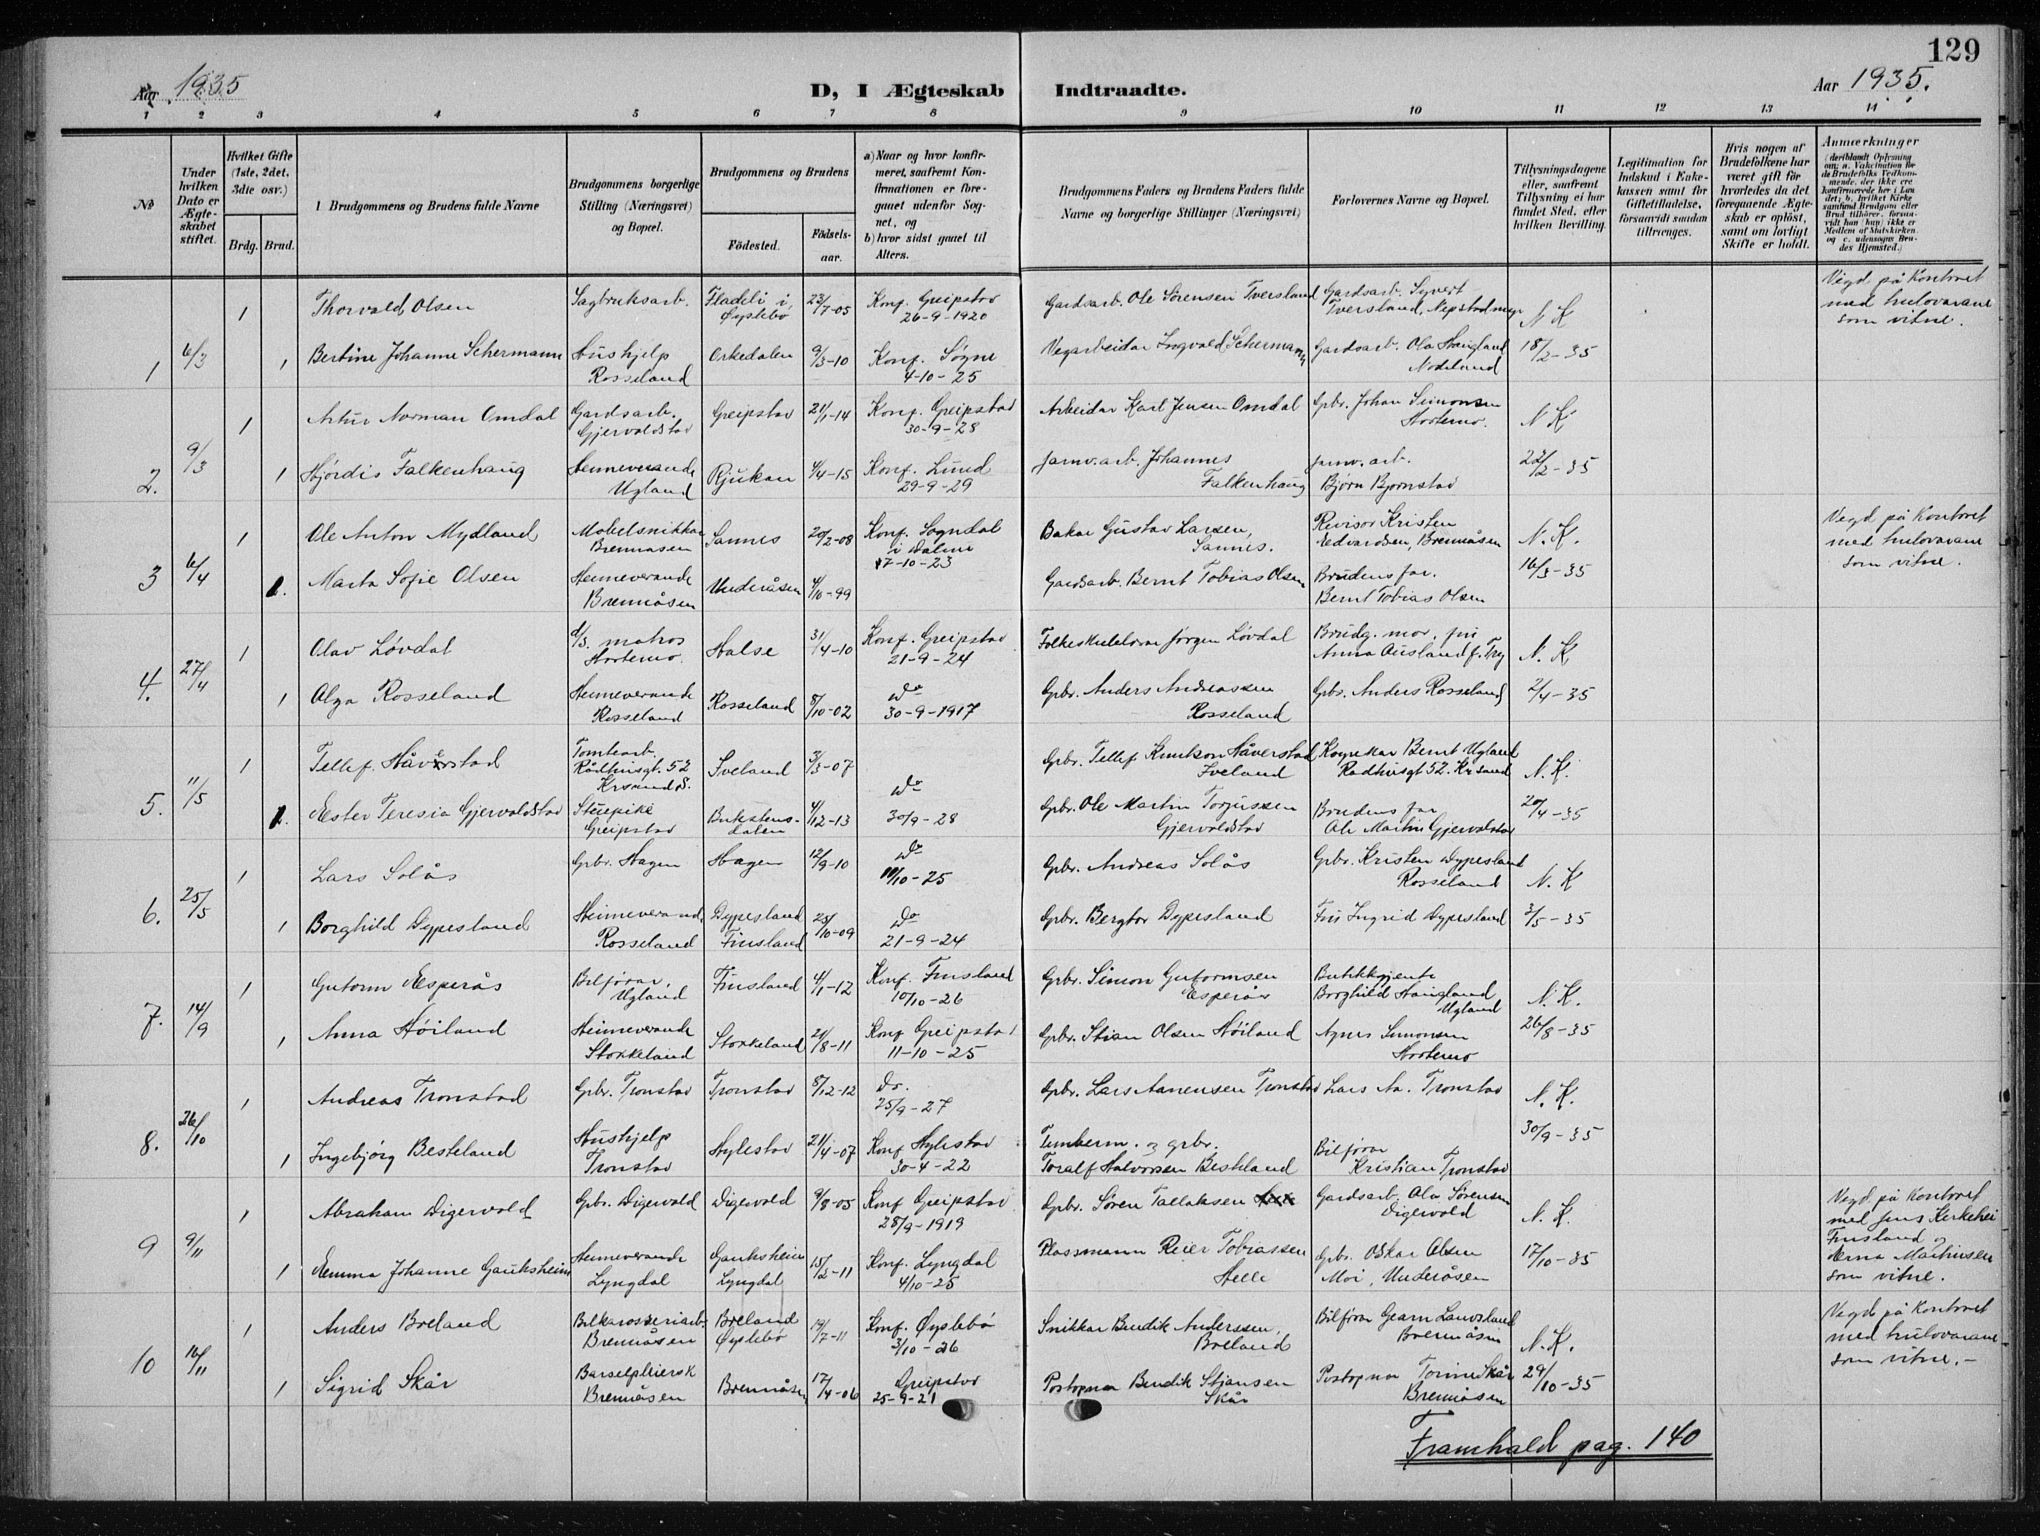 129
Aar 1935
D, I Ægteskab Indtraadte.
Aar 1935.
1 2 3 4 5 6 7 8 9 10 11 12 13 14
No
Under hvilken Dato er Ægteskabet stiftet.
Hvilket Gifte (1ste, 2det, 3die osv.)
Brdg. Brud.
Brudgommens og Brudens fulde Navne
Brudgommens borgerlige Stilling (Næringsvei) og Bopæl.
Brudgommens og Brudens
Födested. Födselsaar.
a) Naar og hvor konfirmeret, saafremt Konfirmationen er foregaaet udenfor Sognet, og
b) hvor sidst gaaet til Alters.
Brudgommens Faders og Brudens Faders fulde Navne og borgerlige Stillinger (Næringsvei)
Forlovernes Navne og Bopæl.
Tillysningsdagene eller, saafremt Tillysning ei har fundet Sted, efter hvilken Bevilling.
Legitimation for Indskud i Enkekassen samt for Giftetilladelse, forsaavidt saadan tiltrænges.
Hvis nogen af Brudefolkene har været gift för hvorledes da det foregaaende Ægteskab er oplöst, samt om lovligt Skifte er holdt.
Anmærkninger
(deriblandt Oplysning om: a. Vakcination for de Brudefolks Vedkommende, der ikke ere konfirmerede her i Landet; b. hvilket Kirkesamfund Brudgom eller Brud tilhörer, forsaavidt han (hun) ikke er Medlem af Statskirken og c. udensogns Brudes Hjemsted.)
1 Thorvald Olsen Sagbruksarb. Fladeli i Øyslebø 23/7-05 Konf. Greipstad 26-9-1920 Gardsarb. Ole Sörensen Tversland Gardsarb. Syvert Tversland, N. K. Vegd på Kontoret med hulovarane som vitne.
1 6/3 1 Bertine Johanne Schermann Hushjelp Rosseland Orkedalen 9/3-10 Konf. Søgne 4-10-25 Vegarbeidar Ingvald Schermann Gardsarb. Ola Haugland Nodeland 18/2-35
1 Artur Norman Omdal Gardsarb. Gjervoldstad Greipstad 21/1-14 Konf. Greipstad 30-9-28 Arbeidar Karl Jensen Omdal Grbr. Johan Simonsen Hortemo. N. K.
2. 9/3 1 Hjördis Falkenhaug Heimeverande Ugland Rjukan 4/4-15 Konf. Lund 29-9-29 Jarnv.arb. Johannes Falkenhaug Jarnv. arb. Bjørn Bjørnstad 22/2-35
1 Ole Anton Mydland Mobelsnikkar Brennåsen Sannes 20/2-08 Konf. Sogndal i Dalane 7-10-23 Bakar Gustav Larsen, Sannes. Revisor Kristen Edvardsen, Brennåsen N. K. Vegd på Kontoret med hulovarane som vitne.
3 6/4 1. Marta Sofie Olsen Heimeverande Brennåsen Underåsen 4/10-99 Gardsarb. Bernt Tobias Olsen Brudens far. Bernt Tobias Olsen 16/3-35
1 Olav Løvdal d/s. matros Hortemo. Halse 31/4-10 Konf. Greipstad 21-9-24 Folkeskulelærar Jørgen Løvdal Brudg. mor, fru Anna Ausland f. Try N. K.
4. 27/4 1 Olga Rosseland Heimeverande Rosseland Rosseland 8/10-02 Do 30-9-1917 Grbr. Anders Andreassen Rosseland Grbr. Anders Rosseland 2/4-35
1 Tellef Håverstad Tomtearb. Rådhusgt. 52 Krsand S. Iveland 3/3-07 Grbr. Tellef Knutson Håverstad Iveland Bernt Ugland Rådhusgt 52. Kr.sand N. K.
5. 11/5 1. Ester Teresia Gjervoldstad Stuepike Greipstad Bukstensdalen 4/12-13 Do 30/9-28 Grbr. Ole Martin Torjussen Gjervoldstad Brudens far Ole Martin Gjervoldstad 20/4-35
1 Lars Solås Grbr. Hagen Hagen 12/9-10 Do 11/10-25 Grbr. Andreas Solås Grbr. Kristen Dypesland Rosseland N. K
6. 25/5 1 Borghild Dypesland Heimeverand. Rosseland Dypesland Finsland 25/10-09 Do 21-9-24 Grbr. Bergtor Dypesland Fru Ingrid Dypesland 3/5-35
1 Gutorm Esperås Bilførar, Ugland Finsland 4/1-12 Konf. Finsland 10/10-26 Grbr. Simon Gutormsen Esperås Butikkgjente Borghild Haugland Ugland N. K.
7. 14/9 1 Anna Høiland Heimeverande Stokkeland Stokkeland 21/8-11 Konf Greipstad 11-10-25 Grbr. Stian Olsen Høiland Agnes Simonsen Hortemo 26/8-35
1 Andreas Tronstad Grbr. Tronstad Tronstad 8/12-12 Do. 25/9-27 Grbr. Lars Aanensen Tronstad Lars Aa. Tronstad N. K.
8. 26/10 1 Ingebjørg Besteland Hushjelp Tronstad Hylestad 21/4-07 Konf Hylestad 30-4-22 Tømberm. og grbr. Toralf Halvorsen Besteland Bilførar Kristian Tronstad 30/9-35
1 Abraham Digervold Grbr. Digervold Digervold 9/8-05 Konf Greipstad 28/9-1919 Grbr. Sören Tallaksen Gardsarb. Ola Sörensen Digervold N. K. Vegd på Kontoret med Jens Kirkehei Finsland og Erna Martinsen som vitne.
9 9/11 1 Emma Johanne Gauksheim Heimeverande Lyngdal Gauksheim Lyngdal 15/2-11 Konf. Lyngdal 4/10-25 Plassmann Reier Tobiassen Helle Grbr. Oskar Olsen Moi, Underåsen 17/10-35
1 Anders Breland Bilkarosseriarb. Brennåsen Breland Øyslebö 19/7-11 Konf. Øyslebö 3/10-26 Snikkar Bendik Anderssen, Breland Bilførar Gearn Landsland Brennåsen N. K. Vegd på Kontoret med hulovarane som vitne.-
10 16/11 1 Sigrid Skår Barselpleiersk Brennåsen Brennåsen 17/4-06 Greipstad 25-9-21 Postopnar Bendik Stiansen Skår Postopnar Tomine Skår Brennåsen 29/10-35
Framhald pag. 140